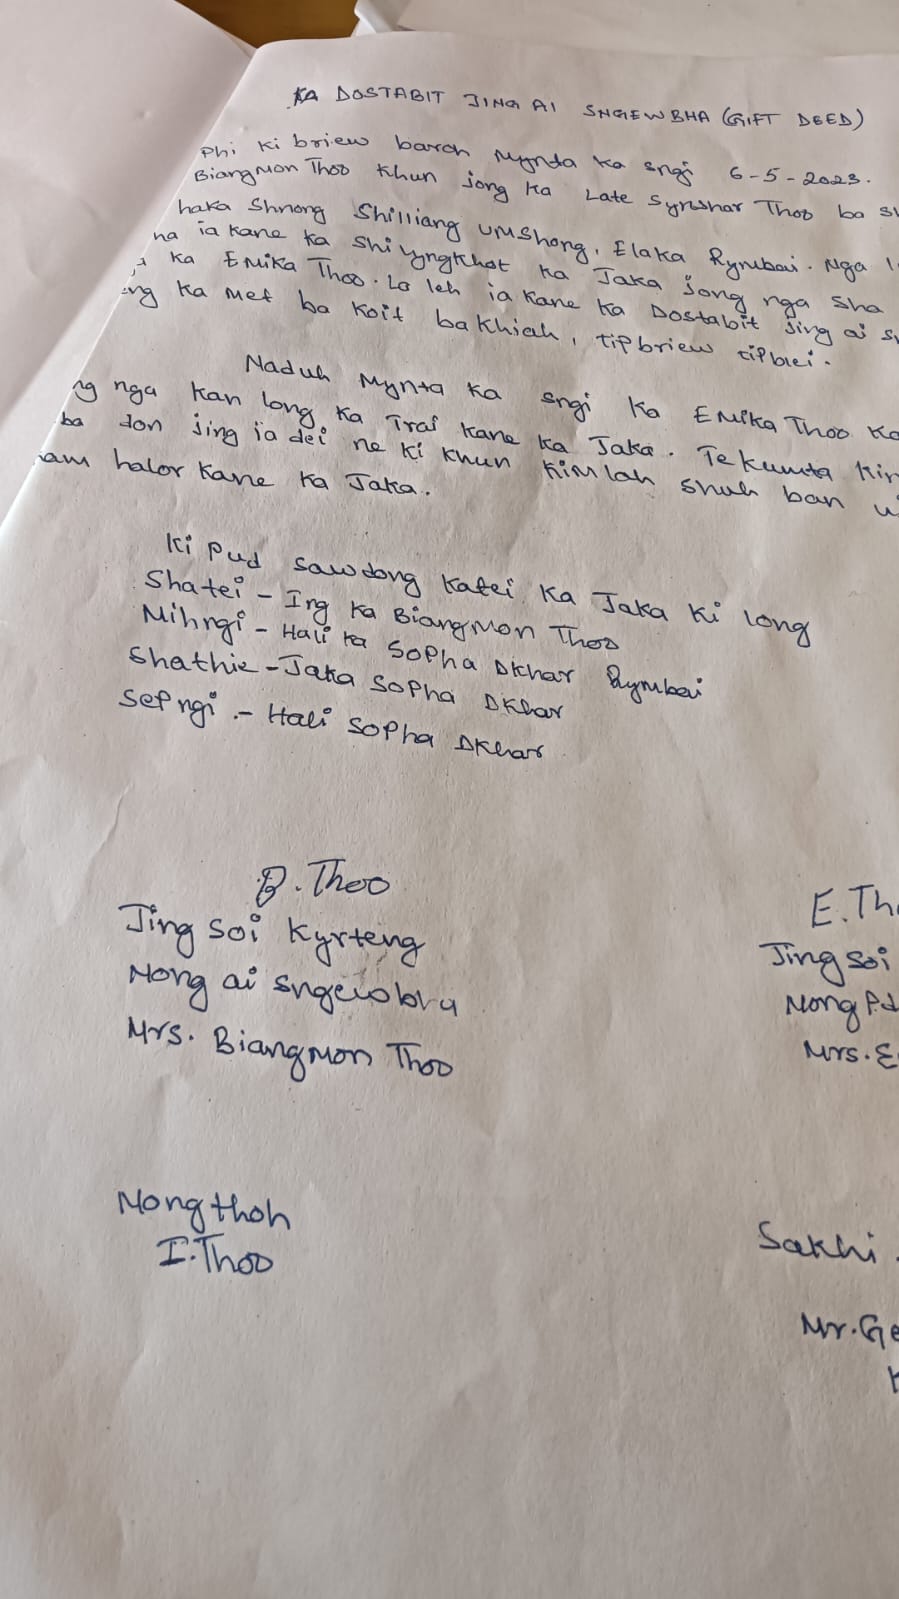 KA DOSTABIT JING AI SNGEWBHA (GIFT DEED)
Phi ki briew baroh mynda ka sngi 6-5-2023.
Biangmon Thoo Khun jong ka Late Syrshar Thoo ba sh
haka Shnong Shilliang umshong, Elaka Rymbai. Nga l
na ia kane ka shi yngkhot ka Jaka jong nga sha
ka Emika Thoo. La leh ia kane ka Dostabit Jing ai s
eng ka met ba koit bakhiah, tipbriew tipblei.
Naduh mynta ka sngi ka Emika Thoo ka
ng nga kan long ka Trai kane ka Jaka. Te kumta kin
ba don jing iadei ne ki khun kim lah shuh ban w
am halor kane ka Jaka.
Ki pud sawdong katei ka Jaka ki long
Shatei - Ing ka Biangmon Thoo
Mihngi - Hali ka Sopha Dkhar Rymbai
Shathie - Jaka Sopha Dkhar
Sepngi - Hali Sopha Dkhar
B. Thoo
Jing soi Kyrteng
Nong ai sngewbha
Mrs. Biangmon Thoo
E. Th
Jing soi
Nong Pd
Mrs. E
Nongthoh
I. Thoo
Sakhi
Mr. Ge
K